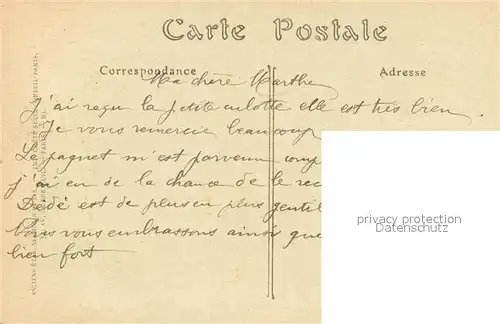 Carte Postale
Correspondance
Adresse
Ma chère Marthe
J'ai reçu la petite culotte elle est très bien.
Je vous remercie beaucoup
Le paquet m'est parvenu
j'ai eu de la chance de le
Dédé est de plus en plus gentil
vous embrassons ainsi que
bien fort
privacy protection
Datenschutz